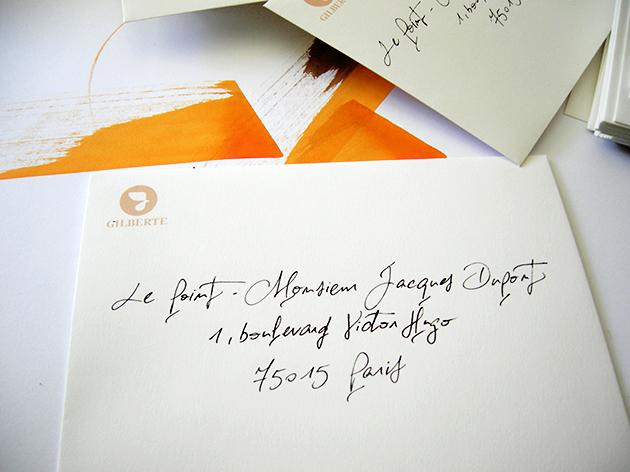 Le Point - C
1, bou
75015
GILBERTE
Le Point - Monsieur Jacques Dupont
1, boulevard Victor Hugo
75015 Paris